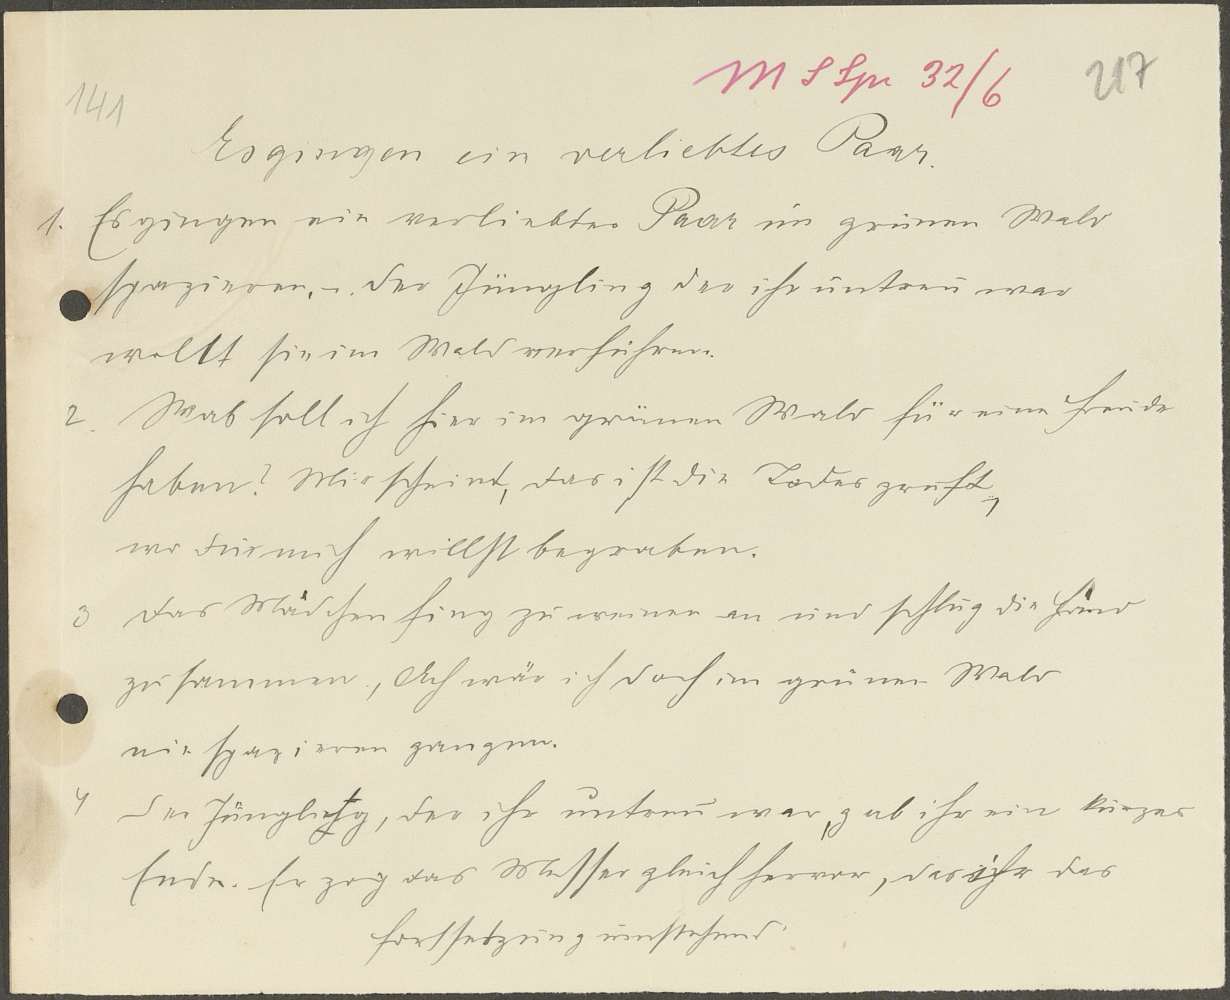 M S Spr 32/6 217
141
Es gingen ein verliebtes Paar.
1. Es gingen ein verliebtes Paar im grünen Wald
spazieren, u. der Jüngling der ihr untreu war
wollt sie im Wald verführen.
2. Was soll ich hier im grünen Wald für eine Freude
haben? Mir scheint, das ist die Todesgruft,
wo du mich willst begraben.
3 Das Mädchen fing zu weinen an und schlug die Händ
zusammen, Ach wär ich doch im grünen Wald
nie spazieren gangen.
4 Der Jüngling, der ihr untreu war, gab ihr ein kurzes
Ende. Er zog das Messer gleich hervor, das ihr das
Fortsetzung umstehend